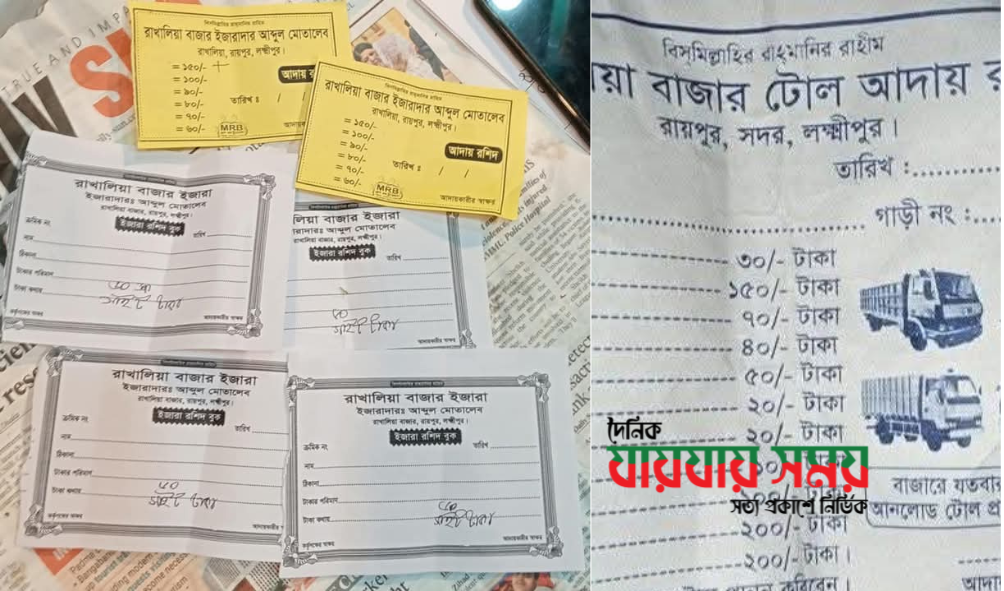 TRUE AND IMPA
বিসমিল্লাহির রাহমানির রাহিম
রাখালিয়া বাজার ইজারাদার আব্দুল মোতালেব
রাখালিয়া, রায়পুর, লক্ষ্মীপুর।
= ১৫০/-
= ১০০/-
= ৯০/-
= ৮০/-
= ৭০/-
= ৬০/-
তারিখ :
আদায় র
MRB
আদায়ক
বিসমিল্লাহির রাহমানির রাহিম
রাখালিয়া বাজার ইজারাদার আব্দুল মোতালেব
রাখালিয়া, রায়পুর, লক্ষ্মীপুর।
= ১৫০/-
= ১০০/-
= ৯০/-
= ৮০/-
= ৭০/-
= ৬০/-
আদায় রশিদ
তারিখ : / /
MRB
আদায়কারীর স্বাক্ষর
রাখালিয়া বাজার ইজারা
ইজারাদারঃ আব্দুল মোতালেব
রাখালিয়া বাজার, রায়পুর, লক্ষ্মীপুর।
ইজারা রশিদ বুক
ক্রমিক নং
তারিখ
নাম
ঠিকানা
টাকার পরিমাণ
টাকা কথায়
ষাইট টাকা
কর্তৃপক্ষের স্বাক্ষর
আদায়কারীর স্বাক্ষর
লিয়া বাজার ইজারা
রাদারঃ আব্দুল মোতালেব
রাখালিয়া বাজার, রায়পুর, লক্ষ্মীপুর।
ইজারা রশিদ বুক
তারিখ
৬০
ষাইট টাকা
আদায়কারীর স্বাক্ষর
রাখালিয়া বাজার ইজারা
ইজারাদারঃ আব্দুল মোতালেব
রাখালিয়া বাজার, রায়পুর, লক্ষ্মীপুর।
ইজারা রশিদ বুক
ক্রমিক নং
তারিখ
নাম
ঠিকানা
টাকার পরিমাণ
টাকা কথায়
৬০
ষাইট টাকা
কর্তৃপক্ষের স্বাক্ষর
আদায়কারীর স্বা
রাখালিয়া বাজার ইজারা
ইজারাদারঃ আব্দুল মোতালেব
রাখালিয়া বাজার, রায়পুর, লক্ষ্মীপুর।
ইজারা রশিদ বুক
ক্রমিক নং
তারিখ
নাম
ঠিকানা
টাকার পরিমাণ
টাকা কথায়
৬০
ষাইট টাকা
কর্তৃপক্ষের স্বাক্ষর
আদায়কারীর স্বাক্ষর
MMU Police Hospital
বিস্‌মিল্লাহির রাহ্‌মানির রাহীম
য়া বাজার টোল আদায় র
রায়পুর, সদর, লক্ষ্মীপুর।
তারিখ :
গাড়ী নং :
৩০/- টাকা
১৫০/- টাকা
৭০/- টাকা
৪০/- টাকা
৫০/- টাকা
২০/- টাকা
২০/- টাকা
১০০/- টাকা
২০০/- টাকা
২০০/- টাকা।
বাজারে যতবার
আনলোড টোল প্র
করিবেন।
আদা
দৈনিক
যায়যায় সময়
সত্য প্রকাশে নির্ভিক